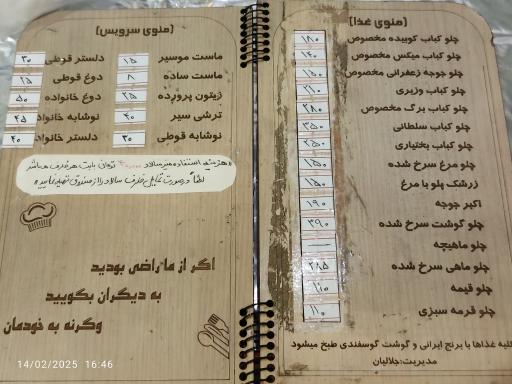 (منوی غذا)
چلو کباب کوبیده مخصوص ۱۸۰
چلو کباب میکس مخصوص ۱۴۰
چلو جوجه زعفرانی مخصوص ۱۵۰
چلو کباب وزیری ۲۱۰
چلو کباب برگ مخصوص ۲۸۰
چلو کباب سلطانی ۳۵۰
چلو کباب بختیاری ۲۵۰
چلو مرغ سرخ شده ۱۵۰
زرشک پلو با مرغ ۱۵۰
اکبر جوجه ۱۹۰
چلو گوشت سرخ شده ۳۹۰
چلو ماهیچه —
چلو ماهی سرخ شده ۲۸۵
چلو قیمه ۱۱۰
چلو قرمه سبزی ۱۱۰
کلیه غذاها با برنج ایرانی و گوشت گوسفندی طبخ میشود
مدیریت: جلالیان
(منوی سرویس)
ماست موسیر ۱۵ دلستر قوطی ۳۰
ماست ساده ۸ دوغ قوطی ۱۵
زیتون پرورده ۲۵ دوغ خانواده ۵۰
ترشی سیر ۴۰ نوشابه خانواده ۴۵
نوشابه قوطی ۳۰ دلستر خانواده ۴۰
هزینه استفاده میز سالاد تومان بابت هر ظرف میباشد
لطفا درصورت تمایل ظرف سالاد را از صندوق تهیه نمایید
اگر از ما راضی بودید
به دیگران بگویید
وگرنه به خودمان
14/02/2025 16:46